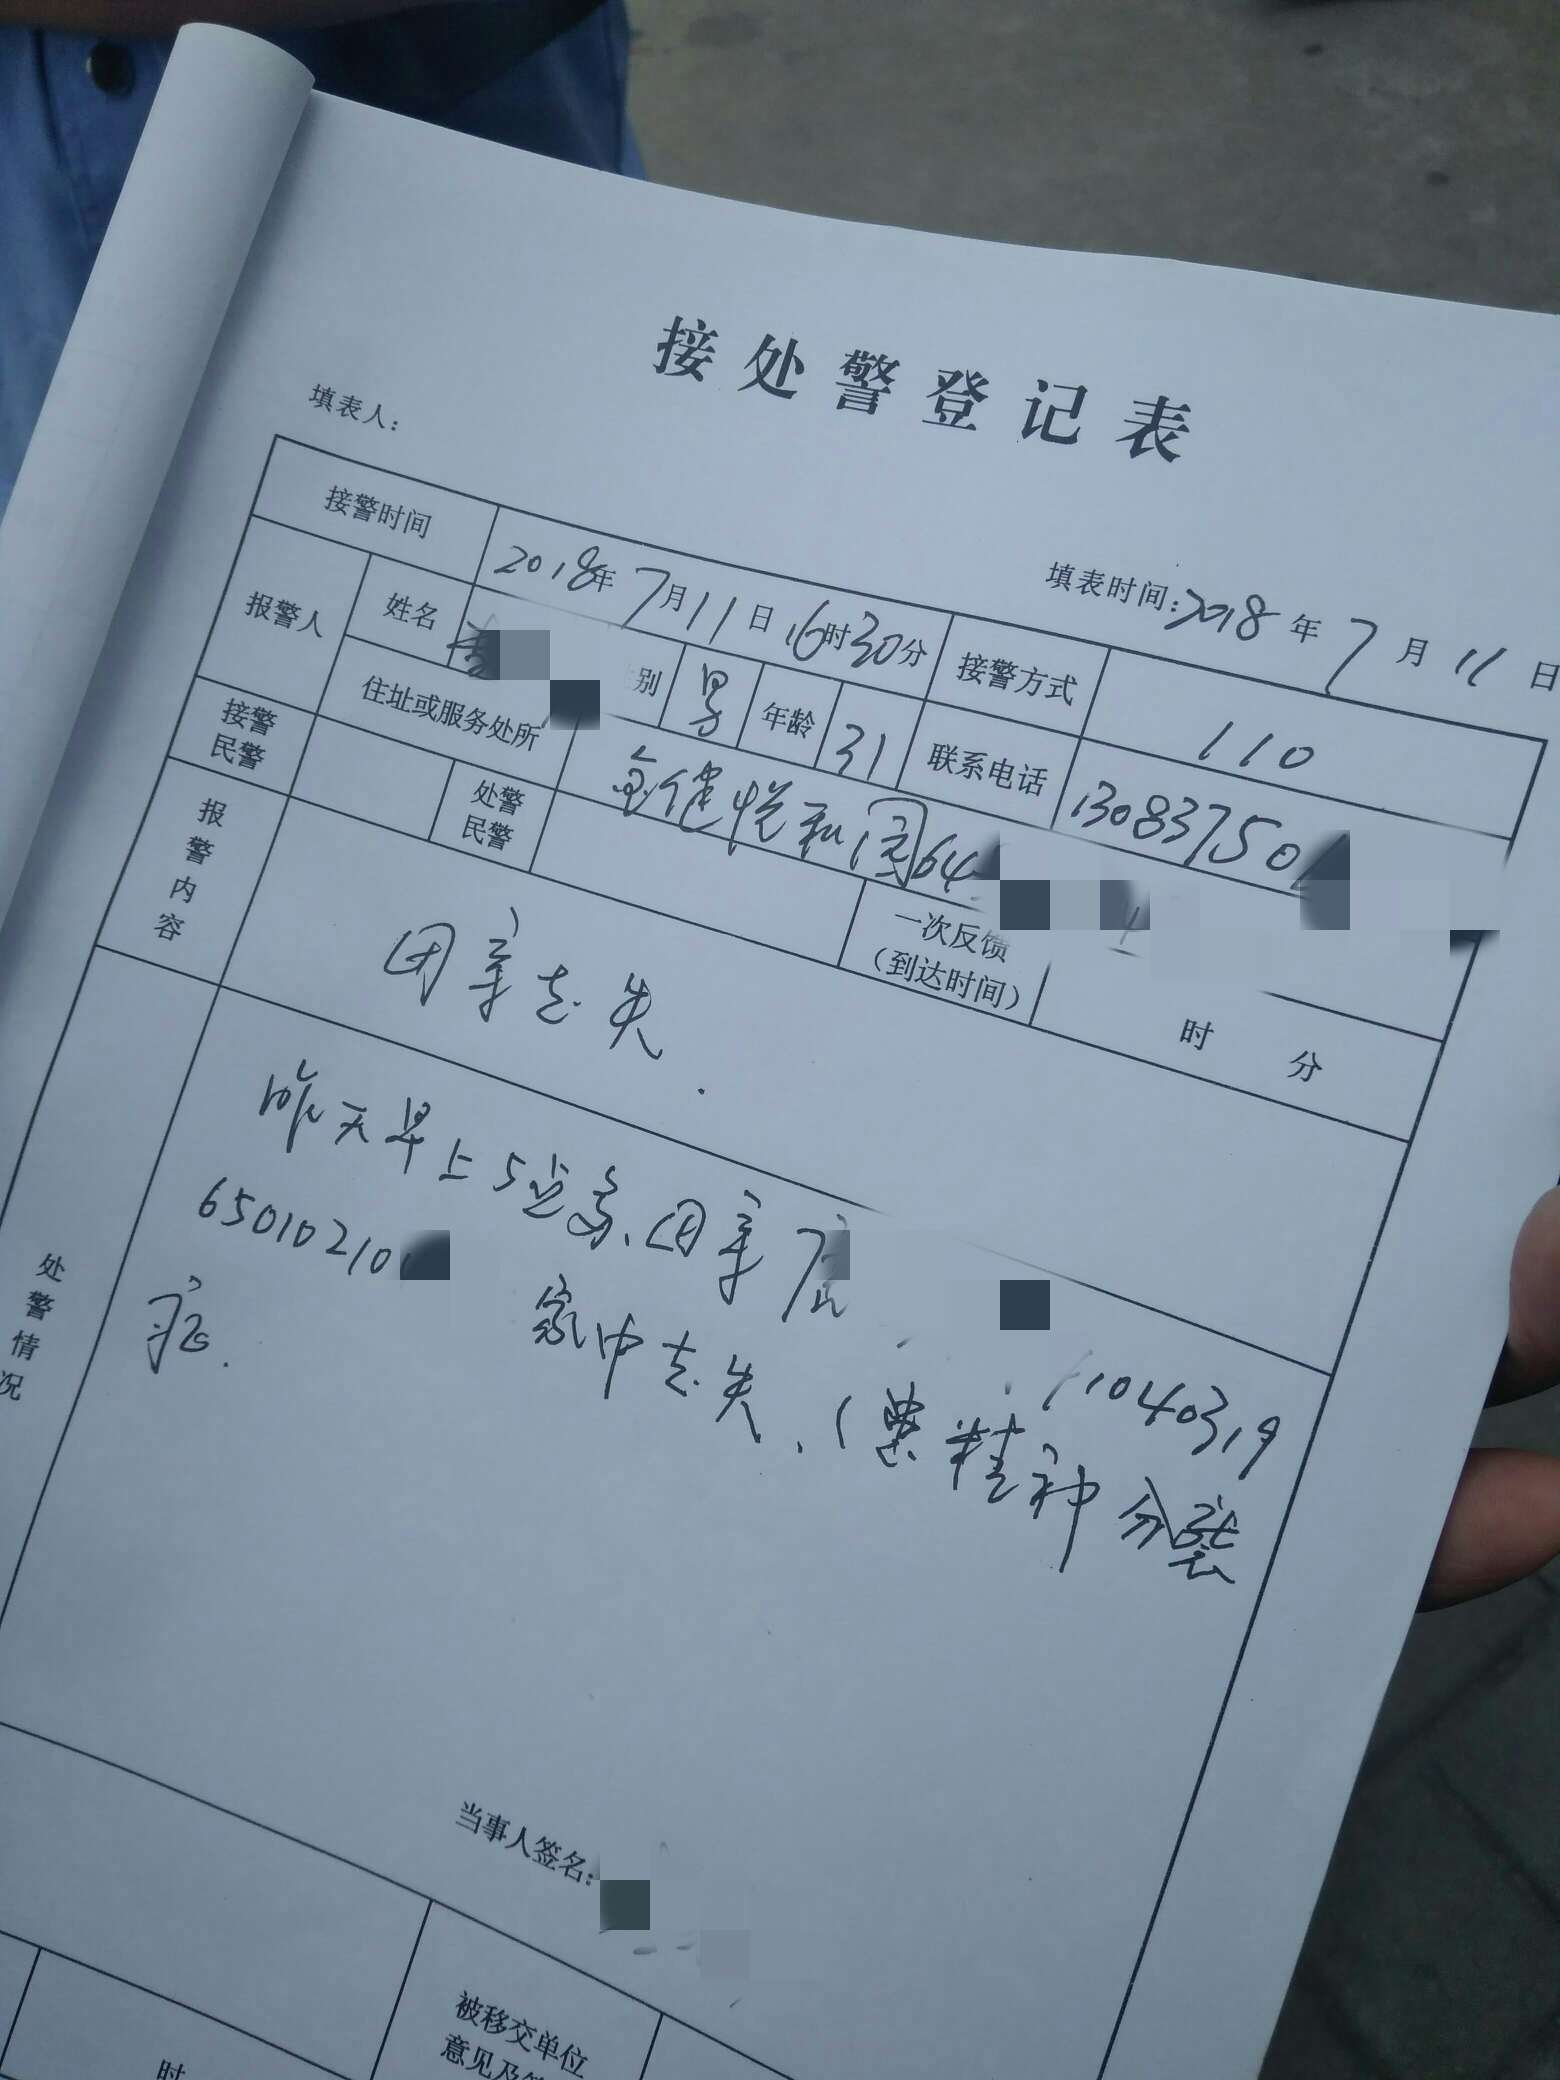 接处警登记表
填表人：
填表时间：2018年7月11日
接警时间 2018年7月11日16时30分 接警方式 110
报警人 姓名 别 男 年龄 31 联系电话 130837502
住址或服务处所 金健悦和园64 4
接警民警 处警民警 一次反馈（到达时间） 时 分
报警内容 母亲走失.
处警情况
昨天早上5点多、母亲 11040319
650102101 家中走失、(患精神分裂
症.
当事人签名：
时
被移交单位
意见及